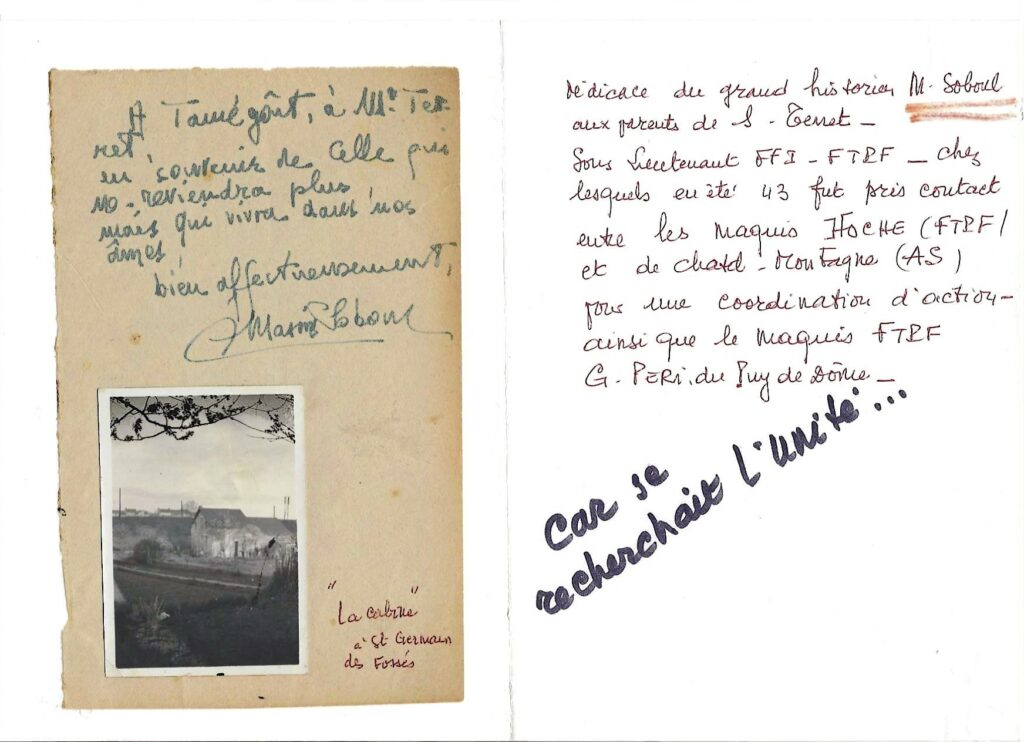 A Tamé goût, à Mr Ter-
ret,
en souvenir de Celle qui
ne reviendra plus,
mais qui vivra dans nos
âmes,
bien affectueusement,
"La cabine"
à St Germain
des Fossés
Dédicace du grand historien M. Soboul
aux parents de S. Terret –
Sous Lieutenant FFI - FTPF – chez
lesquels en été 43 fut pris contact
entre les maquis HOCHE (FTPF)
et de Chatel-Montagne (AS)
pour une coordination d'action –
ainsi que le maquis FTPF
G. PERI. du Puy de Dôme –
Car se
recherchait l'unité...